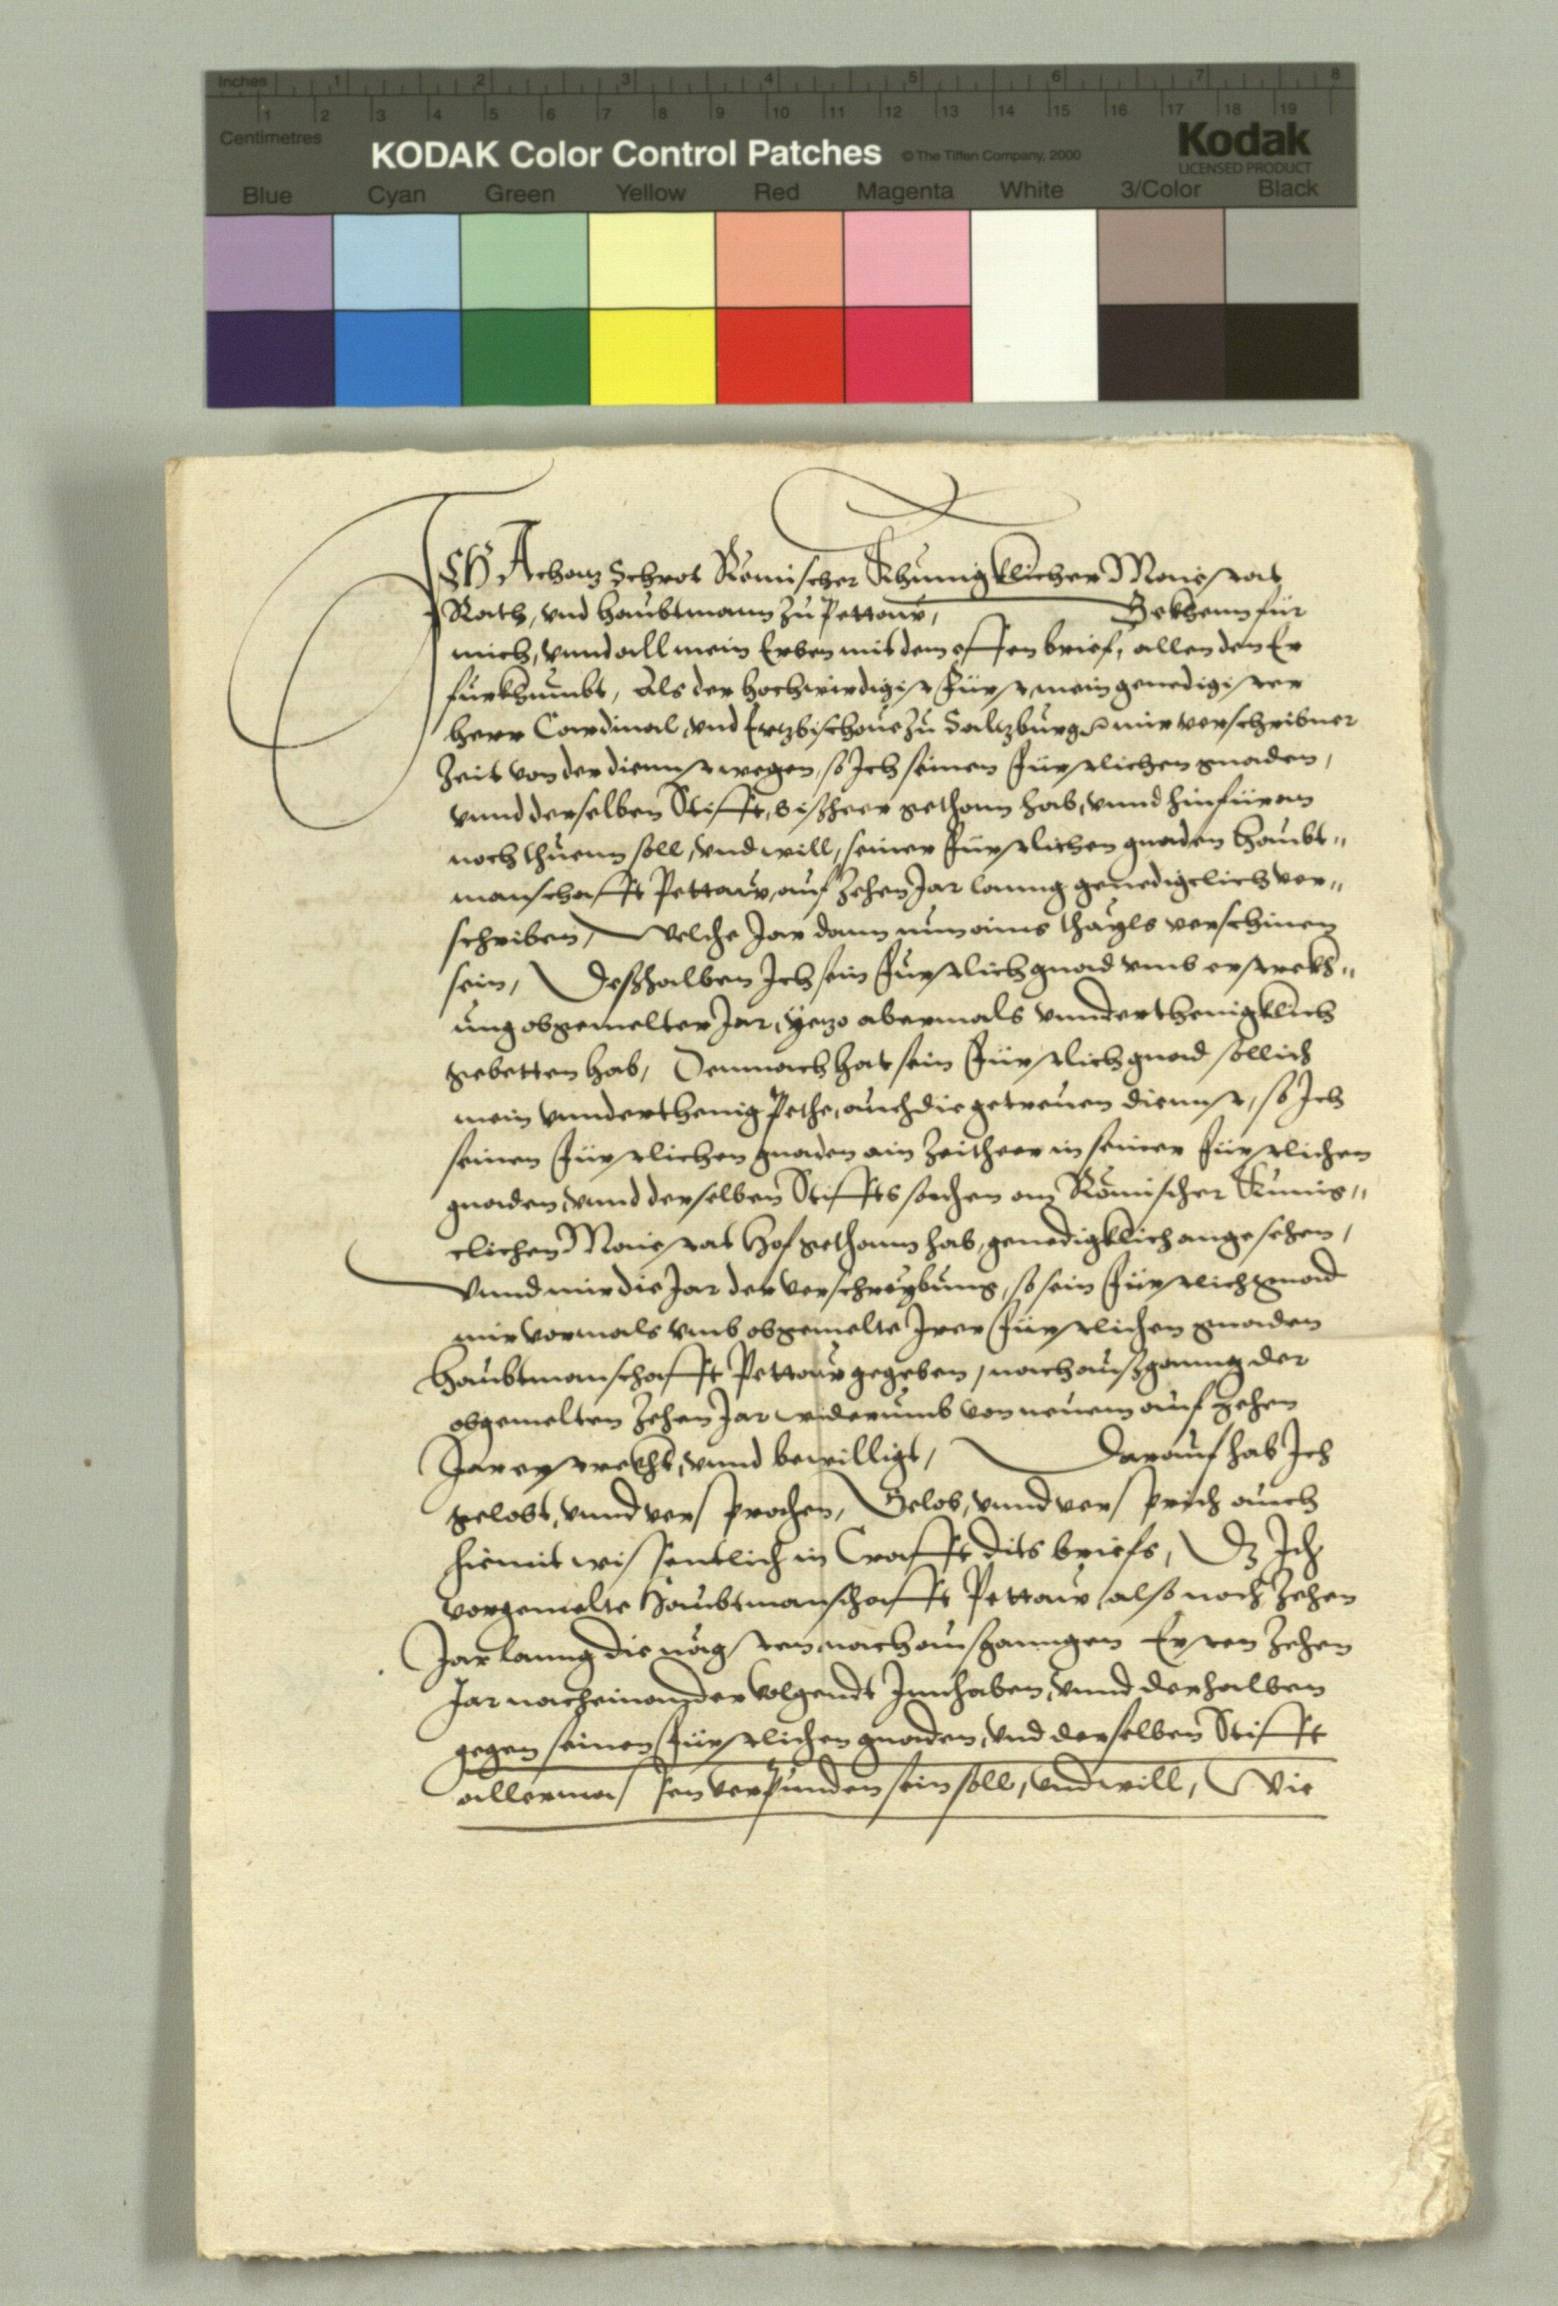 Inches 1 2 3 4 5 6 7 8
1 2 3 4 5 6 7 8 9 10 11 12 13 14 15 16 17 18 19
Centimetres
KODAK Color Control Patches © The Tiffen Company, 2000 Kodak
LICENSED PRODUCT
Blue Cyan Green Yellow Red Magenta White 3/Color Black
ICH Achatz Schrot Römischer Khunigklicher Maiestat
Rath, vnd haubtmann zu Pettaw, Bekhenn für
mich, vnnd all mein Erben mit dem offen brief, allen den Er
fürkhumbt, Als der hochwirdigist Fürst, mein genedigister
herr Cardinal, vnd Ertzbischoue zu Saltzburg mir verschribner
Zeit von der dienst wegen, so Ich seinen Fürstlichen gnaden,
vnnd derselben Stifft, bißheer gethann hab, vnnd hinfüran
noch thuenn soll, vnd will, seiner Fürstlichen gnaden haubt„
manschafft Pettaw, auf zehen Jar lanng genedigclich ver„
schriben, Welche Jar dann nun ains thayls verschinen
sein, Deßhalben Ich sein Fürstlich gnad vmb erstrekh„
ung obgemelter Jar, yetzo abermals vnnderthenigklich
gebetten hab, Demnach hat sein Fürstlich gnad sollich
mein vnnderthenig Pethe, auch die getreuen dienst, so Ich
seinen Fürstlichen gnaden ain Zeitheer in seiner Fürstlichen
gnaden, vnnd derselben Stiffts sachen am Römischer Kunig„
clichen Maiestat Hof gethann hab, genedigklich angesehen,
Vnnd mir die Jar der verschreybung, so sein Fürstlich gnad
mir vormals vmb obgemelte Irer Fürstlichen gnaden
haubtmanschafft Pettaw gegeben, nach außganng der
obgemelten zehen Jar widerumb von neuem auf zehen
Jar erstrekht, vnnd bewilligt, Darauf hab Ich
gelobt, vnnd versprochen, Gelob, vnnd versprich auch
hiemit wissentlich in Crafft dits briefs, Dz Ich
vorgemelte Haubtmanschafft Pettaw also noch zehen
Jar lanng die nägsten nach ausganngen Ersten zehen
Jar nacheinannder volgendt Innhaben, vnnd derhalben
gegen seinen Fürstlichen gnaden, vnd derselben Stifft
allermassen verpunden sein soll, vnd will, Wie